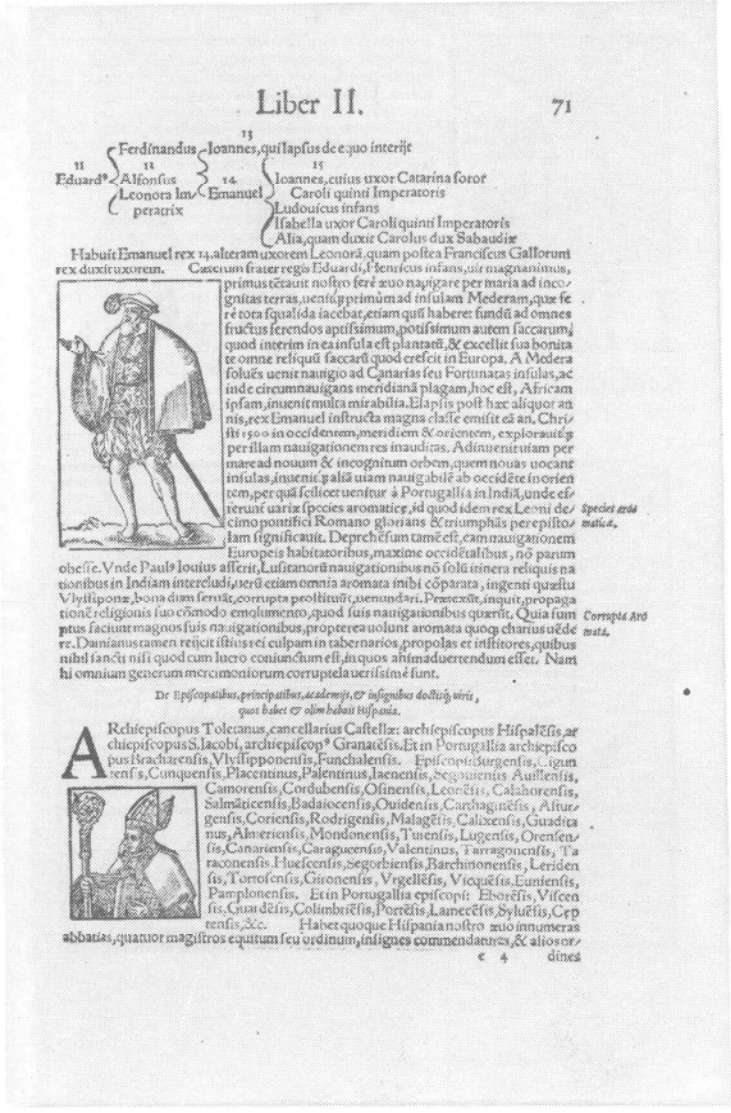 Liber II. 71
13
Ferdinandus Ioannes, qui lapsus de equo interijt
11 12 15
Eduardꝰ Alfonsus 14 Ioannes, cuius uxor Catarina soror
Leonora Im Emanuel Caroli quinti Imperatoris
peratrix Ludouicus infans
Isabella uxor Caroli quinti Imperatoris
Alia, quam duxit Carolus dux Sabaudiæ
Habuit Emanuel rex 14. alteram uxorem Leonorā, quam postea Franciscus Gallorum
rex duxit uxorem. Cæterum frater regis Eduardi, Henricus infans, uir magnanimus,
primus tētauit nostro ferè æuo nauigare per maria ad inco/
gnitas terras, uenitq́ꝫ primùm ad insulam Mederam, quæ fe
rè tota squalida iacebat, etiam quū haberet fundū ad omnes
fructus ferendos aptissimum, potissimum autem saccarum,
quod interim in ea insula est plantatū, & excellit sua bonita
te omne reliquū saccarū quod crescit in Europa. A Medera
soluēs uenit nauigio ad Canarias seu Fortunatas insulas, ac
inde circumnauigans meridianā plagam, hoc est, Africam
ipsam, inuenit multa mirabilia. Elapsis post hæc aliquot an
nis, rex Emanuel instructa magna classe emisit eā an. Chri/
sti 1500 in occidentem, meridiem & orientem, explorauitq́ꝫ
per illam nauigationem res inauditas. Adinuenit uiam per
mare ad nouum & incognitum orbem, quem nouas uocant
insulas, inuenitq́ꝫ aliā uiam nauigabilē ab occidēte in orien
tem, per quā scilicet uenitur à Portugallia in Indiā, unde ef/
ferunt uariæ species aromaticæ, id quod idem rex Leoni de/
cimo pontifici Romano glorians & triumphās per episto/
lam significauit. Deprehēsum tamē est, eam nauigationem
Europeis habitatoribus, maxime occidētalibus, nō parum
Species aro
matica.
obesse. Vnde Paulꝰ Iouius asserit, Lusitanorū nauigationibus nō solū itinera reliquis na
tionibus in Indiam intercludi, uerū etiam omnia aromata inibi cōparata, ingenti quæstu
Vlyssiponæ, bona dum seruāt, corrupta prostituūt, uenundari. Prætexūt, inquit, propaga
tionē religionis suo cōmodo emolumento, quod suis nauigationibus quærūt. Quia sum
ptus faciunt magnos suis nauigationibus, propterea uolunt aromata quoqꝫ charius uēde
re. Damianus tamen reijcit istius rei culpam in tabernarios, propolas et institores, quibus
nihil sancti nisi quod cum lucro coniunctum est, in quos animaduertendum esset. Nam
hi omnium generum mercimoniorum corruptela uerissimè sunt.
Corrupta Aro
mata.
De Episcopatibus, principatibus, academijs, & insignibus doctisq́ꝫ uiris,
quos habet & olim habuit Hispania.
ARchiepiscopus Toletanus, cancellarius Castellæ: archiepiscopus Hispalēsis, ar
chiepiscopus S. Iacobi, archiepiscopꝰ Granatēsis. Et in Portugallia archiepisco
pus Bracharensis, Vlyssipponensis, Funchalensis. Episcopi: Burgensis, Cigun
tensis, Cunquensis, Placentinus, Palentinus, Iaenensis, Segouiensis Auillensis,
Camorensis, Cordubensis, Osinensis, Leonēsis, Calahorensis,
Salmāticensis, Badaiocensis, Ouidensis, Carthaginēsis, Astur/
gensis, Coriensis, Rodrigensis, Malagēsis, Calixensis, Guadita
nus, Almeriensis, Mondonensis, Tuiensis, Lugensis, Orensen/
sis, Canariensis, Caragucensis, Valentinus, Tarragonensis, Ta
raconensis, Huescensis, Segorbiensis, Barchinonensis, Leriden
sis, Tortosensis, Gironensis, Vrgellēsis, Vicquēsis, Euniensis,
Pamplonensis. Et in Portugallia episcopi: Eborēsis, Viscen
sis, Guardēsis, Colimbriēsis, Portēsis, Lamecēsis, Syluēsis, Cep
tensis, &c. Habet quoque Hispania nostro æuo innumeras
abbatias, quatuor magistros equitum seu ordinum, insignes commendatores, & alios or/
e 4 dines